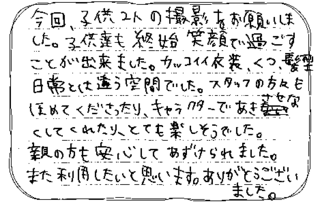 今回、子供2人の撮影をお願いしま
した。子供達も終始笑顔で過ごす
ことが出来ました。カッコイイ衣装、くつ、髪型
日常とは違う空間でした。スタッフの方々も
ほめてくださったり、キャラクターであきさせな
くしてくれたり、とても楽しそうでした。
親の方も安心してあずけられました。
また利用したいと思います。ありがとうござい
ました。